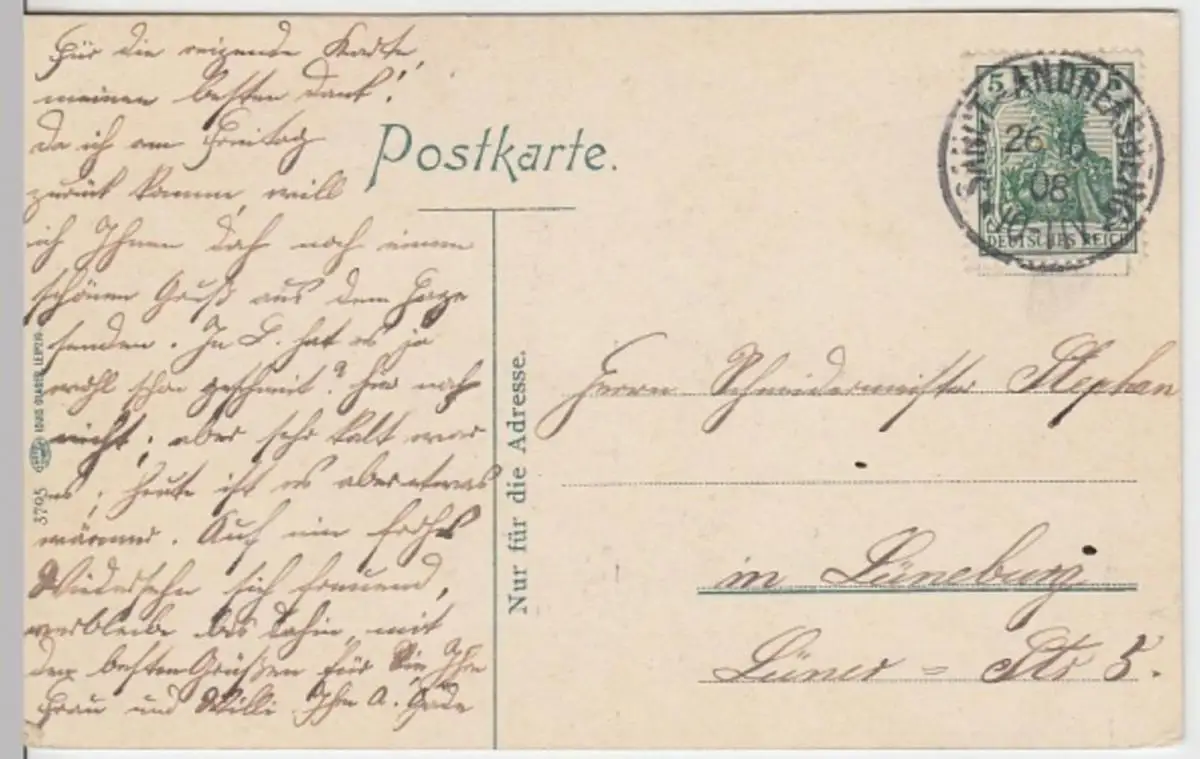 Für die reizende Karte,
meinen besten Dank!
Da ich am Freitag
zurück komme, will
ich Ihnen doch noch einen
schönen Gruß aus dem Harze
senden. In L. hat es ja
wohl schon geschneit? hier noch
nicht, aber sehr kalt war
es; heute ist es aber etwas
wärmer. Auf ein frohes
Wiedersehn sich freuend,
verbleibe bis dahin, mit
den besten Grüßen für Sie, Ihre
Frau und Willi Ihr A.
Postkarte.
Nur für die Adresse.
LOUIS GLASER, LEIPZIG
3795
5
SANKT ANDREASBERG
26
08
DEUTSCHES REICH
Herrn Schneidermeister Stephan
in Lüneburg
Lüner = Str 5.